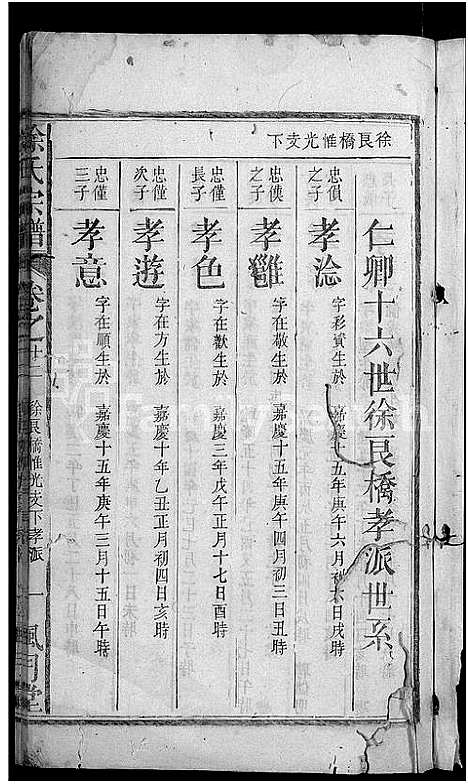 徐良橋惟光支下
仁卿十六世徐良橋孝派世系
忠傎之子
孝淰 字彩資生於 嘉慶十五年庚午六月初六日戌時
忠傼之子
孝雞 字在榮生於 嘉慶十五年庚午四月初三日丑時
忠僅長子
孝色 字在歡生於 嘉慶三年戊午正月十七日酉時
忠僅次子
孝遊 字在方生於 嘉慶十年乙丑正月初四日亥時
忠僅三子
孝意 字在順生於 嘉慶十五年庚午三月十五日午時
徐氏宗譜
卷之廿二
徐良橋惟光支下孝派
一
風月堂